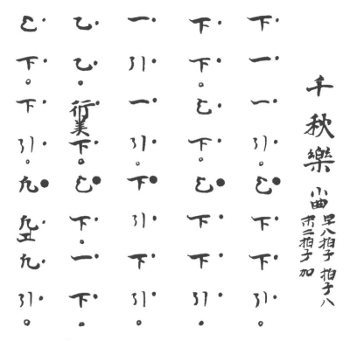 千秋樂 小曲 早八拍子 拍子八
末二拍子加
下一一引乞下下引
下下乞下乞下下引
一引一引下引下引
乙乙行美下乞下一下
乞下下引九九工九引